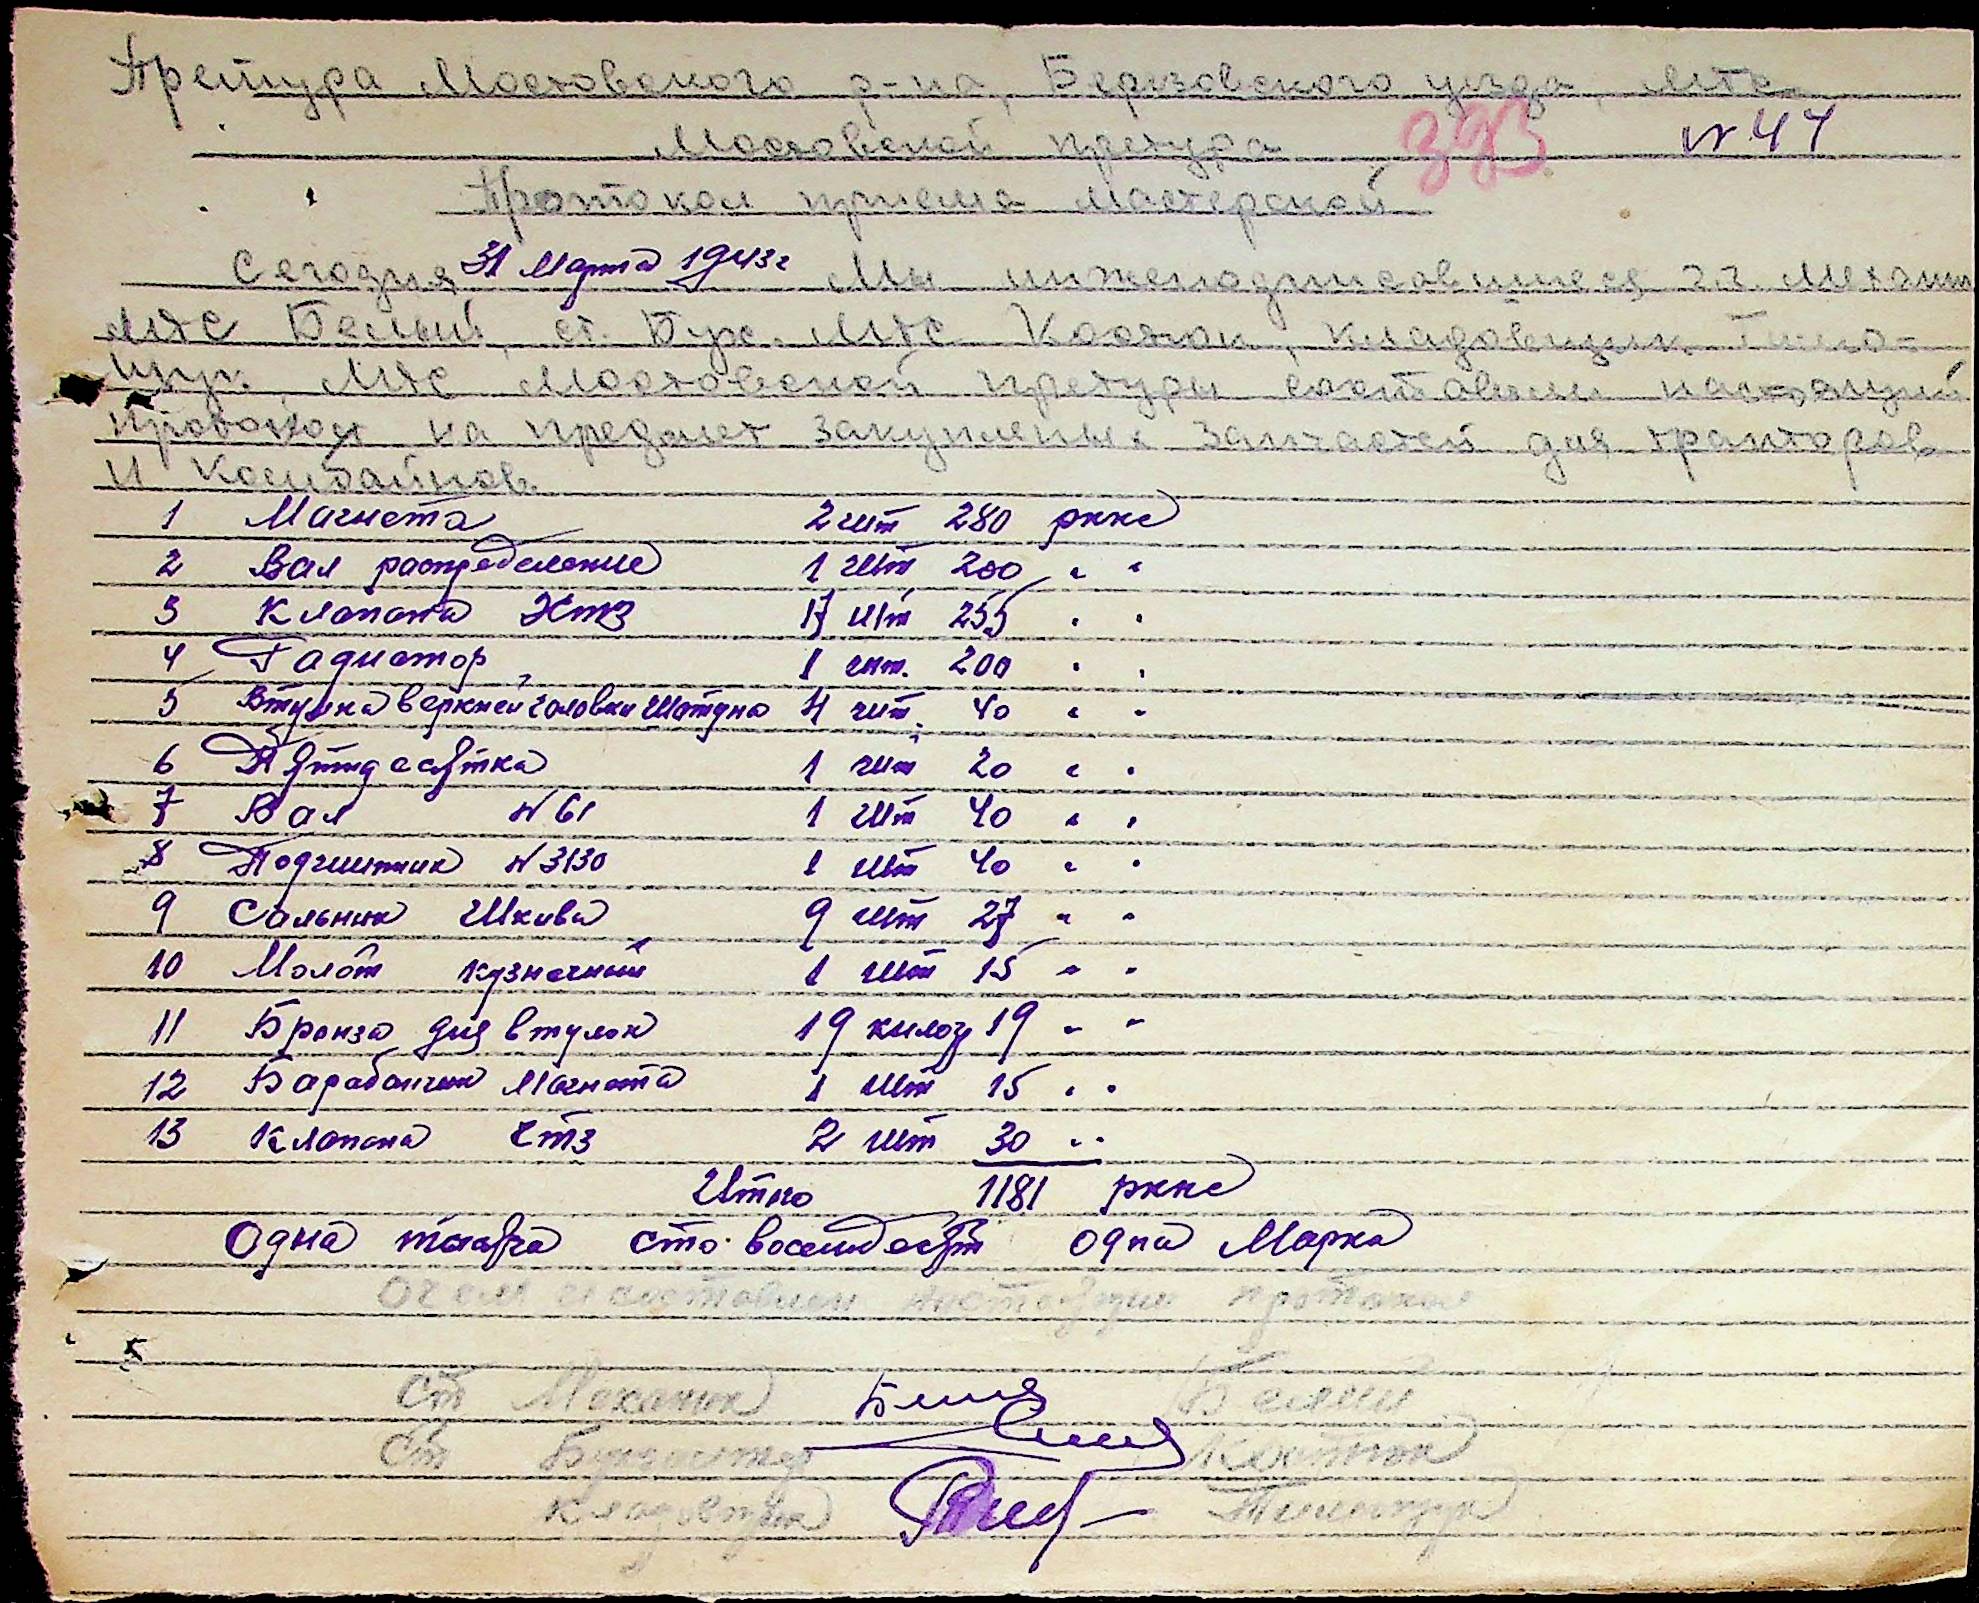 Претура Мостовского р-на, Березовского уезда, МТС
Мостовской претура
393 № 47
Протокол приема мастерской
Сегодня 31 Марта 1943 г Мы нижеподписавшиеся г.г. Механик
МТС Белый, ст. Бух. МТС Костюк, кладовщик Тимо-
щук МТС Мостовской претуры составили настоящий
протокол на предмет закупленых запчастей для тракторов
и комбайнов.
1 Магнета 2 шт 280 ркке
2 Вал распределение 1 шт 200 " "
3 Клапана ХТЗ 17 шт 255 " "
4 Радиатор 1 шт. 200 " "
5 Втулка верхней головки Шатуна 4 шт. 40 " "
6 Пятидесятка 1 шт 20 " "
7 Вал № 61 1 шт 40 " "
8 Подшипник № 3130 1 шт 40 " "
9 Сальник Шкива 9 шт 27 " "
10 Молот кузнечный 1 шт 15 " "
11 Бронза для втулок 19 килог 19 " "
12 Барабанчик Магнета 1 шт 15 " "
13 Клапана СТЗ 2 шт 30 " "
Итого 1181 ркке
Одна тысяча сто восемдесят одна Марка
О чем и составлен настоящий протокол
Ст Механик Белый
Ст Бухгалтер Костюк
Кладовщик Тимощук